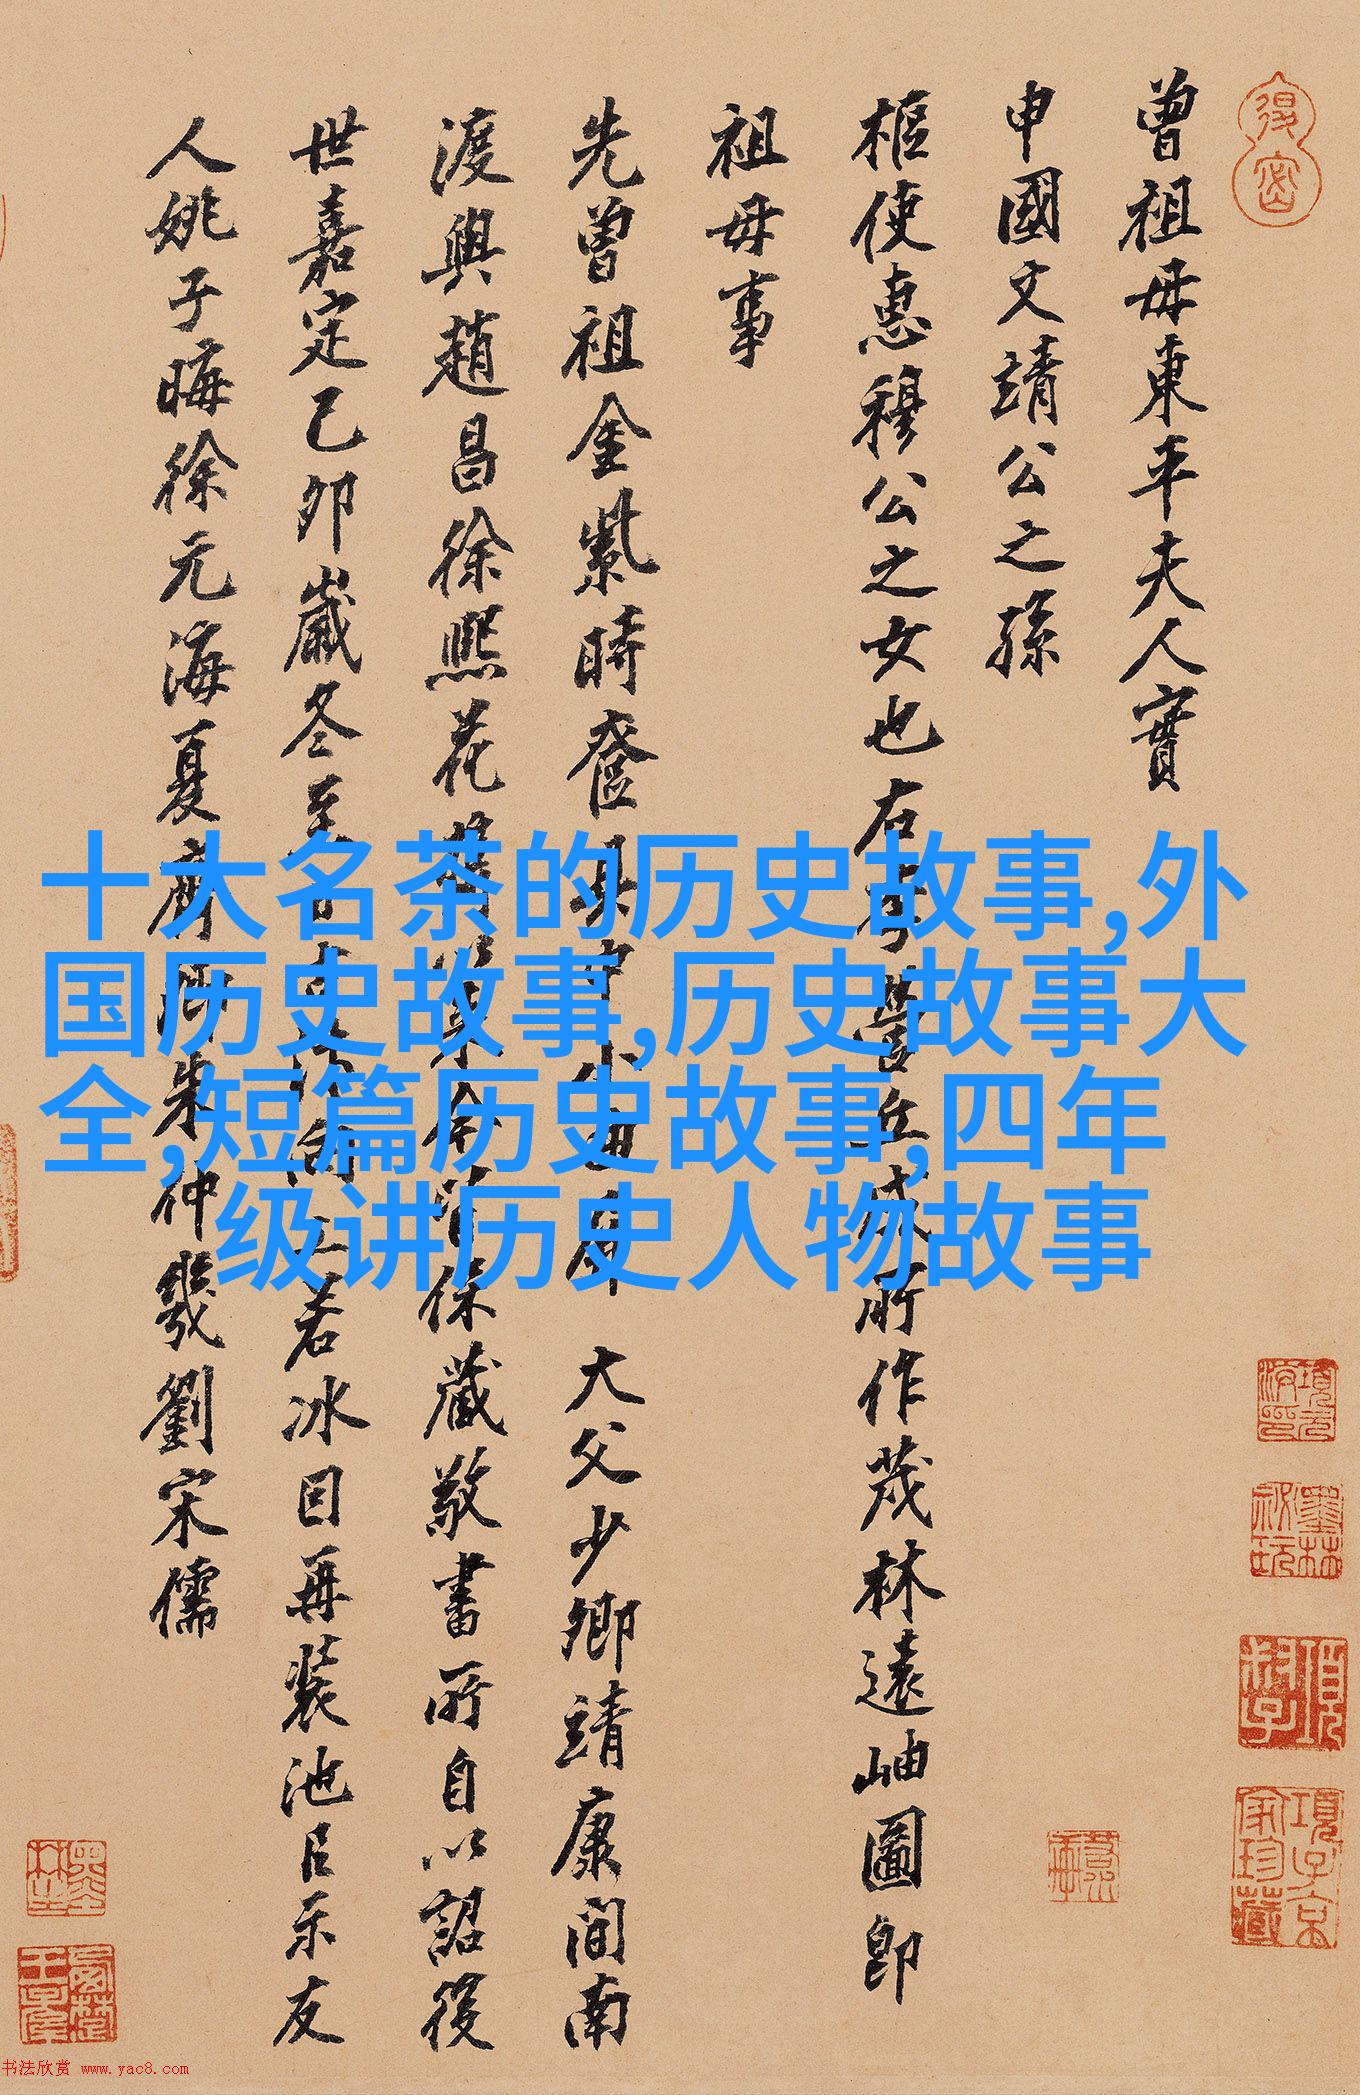 曾祖母東平夫人實
申國文靖公之孫
樞使惠穆公之女也右李營丘咸所作茂林遠岫圖即
祖母事
先曾祖金紫時奩具中 大父少卿靖康間南
渡與趙昌徐熙花 保藏敬書所自以詔後
世嘉定己卯歲冬至 若冰因再裝池呂示友
人姚子晦徐元海夏 仲幾劉宋儒
十大名茶的历史故事,外
国历史故事,历史故事大
全,短篇历史故事,四年
级讲历史人物故事
书法欣赏 www.yac8.com